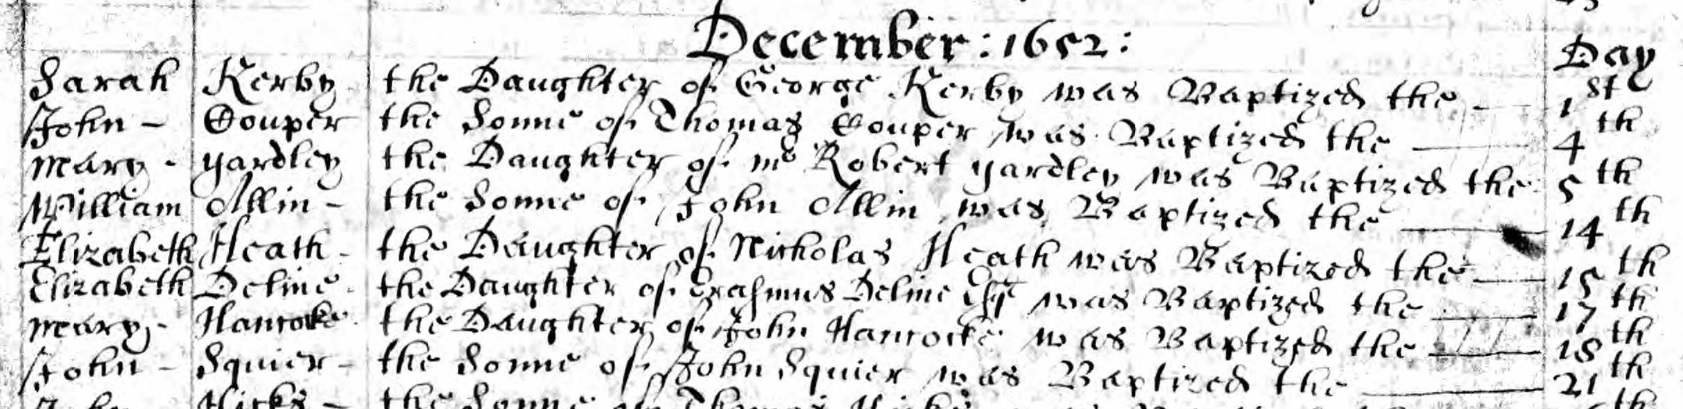 December : 1652 :
Day
Sarah Kerby the Daughter of George Kerby was Baptized the - 1st
John - Souper the Sonne of Thomas Souper was Baptized the 4th
Mary - Yardley the Daughter of Mr Robert Yardley was Baptized the 5th
William Allin - the Sonne of John Allin was Baptized the 14th
Elizabeth Heath - the Daughter of Nicholas Heath was Baptized the 15th
Elizabeth Deline - the Daughter of Erasmus Deline Esq was Baptized the 17th
Mary - Hancocke the Daughter of John Hancocke was Baptized the 18th
John - Squier - the Sonne of John Squier was Baptized the 21th
Hicks - the Sonne of Thomas Hicks